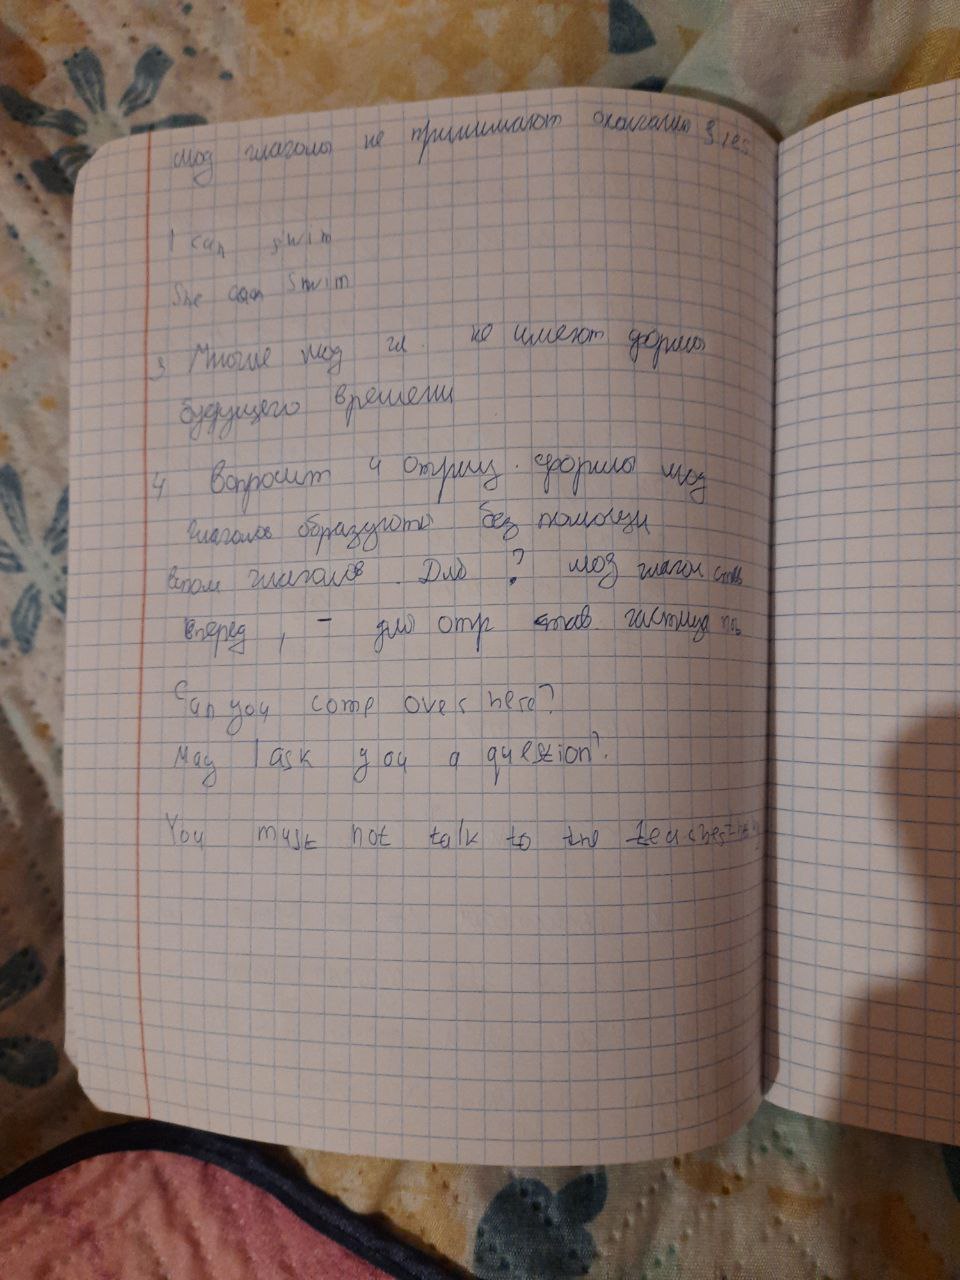 Мод глаголы не принимают окончания s, es
I can swim
She can swim
3 Многие мод гл. не имеют формы
будущего времени
4 Вопросит и отриц. формы мод
глаголов образуются без помощи
вспом глаголов. Для ? мод глагол став
вперед, - для отр став частица not
Can you come over here?
May I ask you a question?
You must not talk to the teacher